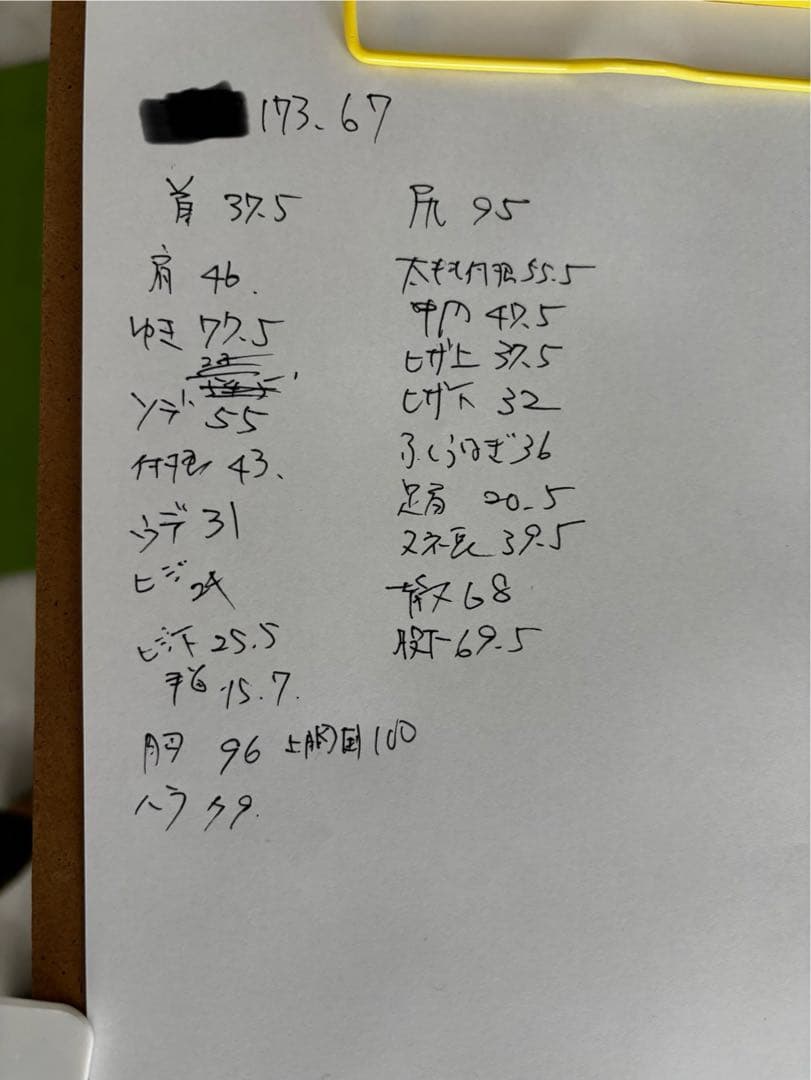 173.67
首 37.5
肩 46.
ゆき 77.5
ソデ 55
付根 43.
ウデ 31
ヒジ 24
ヒジ下 25.5
手首 15.7.
胸 96 上胸囲 100
ハラ 79.
尻 95
太もも付根 55.5
中間 47.5
ヒザ上 37.5
ヒザ下 32
ふくらはぎ 36
足首 20.5
スネ長 39.5
68
股下 69.5